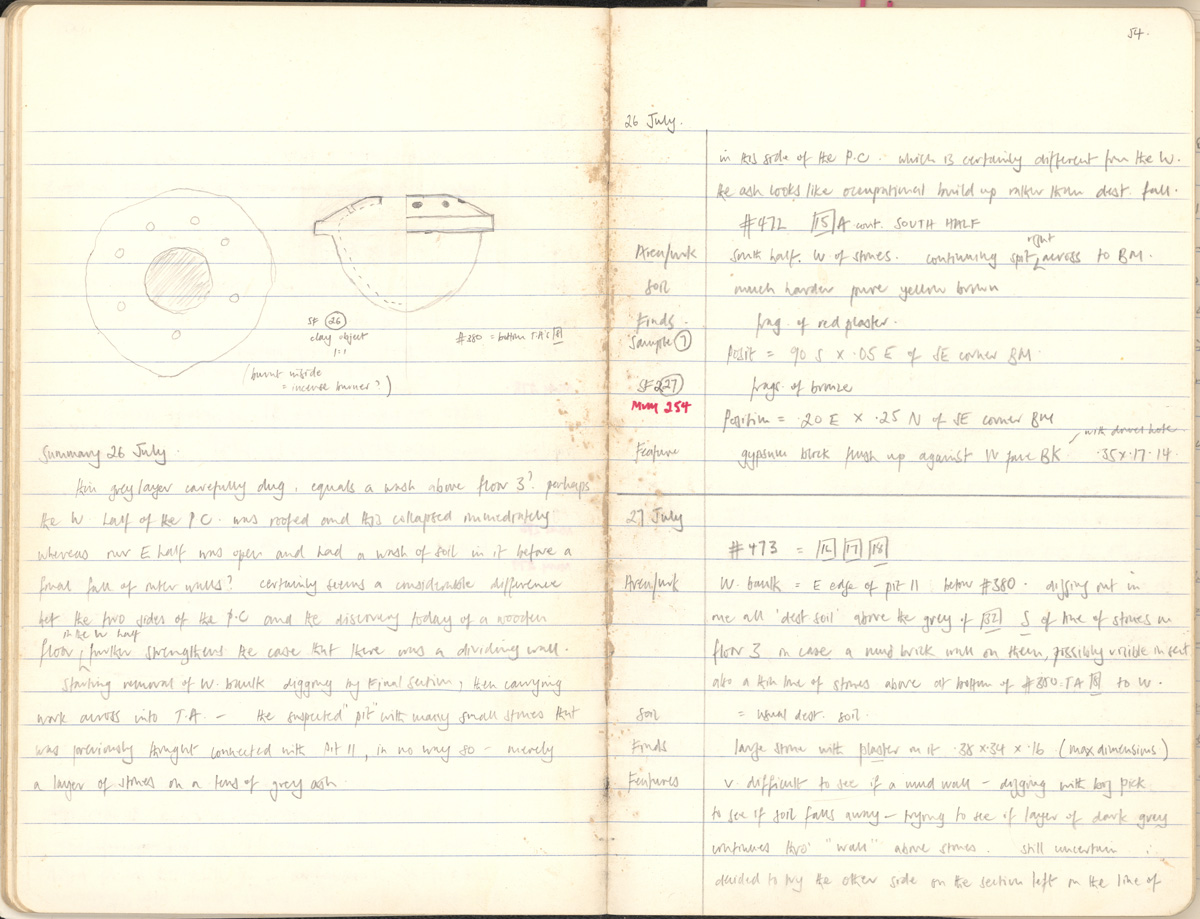 SF 26
clay object
1=1
#380 = bottom T.A's 8
(burnt inside
= incense burner?)
Summary 26 July.
thin grey layer carefully dug, equals a wash above floor 3? perhaps
the W. half of the P.C. was roofed and this collapsed immediately
whereas our E half was open and had a wash of soil in it before a
final fall of outer walls? certainly seems a considerable difference
bet the two sides of the P.C and the discovery today of a wooden
floor in the W half further strengthens the case that there was a dividing wall.
Starting removal of W. baulk digging by final section, then carrying
work across into T.A. – the suspected "pit" with many small stones that
was previously thought connected with Pit 11, in no way so – merely
a layer of stones on a lens of grey ash.
54.
26 July.
in this side of the P.C. which is certainly different from the W.
the ash looks like occupational build up rather than dest. fall.
#472 15 A cont. SOUTH HALF
Area/wk South half. W of stones. continuing spit right across to BM.
Soil much harder pure yellow brown
Finds. frag. of red plaster.
Sample 7
Posit = 90 S × .05 E of SE corner BM.
SF 227 frags. of bronze
MVM 254
Position = .20 E × .25 N of SE corner BM
Feature gypsum block flush up against W face BK with dowel hole .35×.17.14.
27 July
#473 = 12 17 18
Area/wk W. baulk = E edge of pit 11 below #380. digging out in
one all 'dest soil' above the grey of 132 S of line of stones in
floor 3 in case a mud brick wall on them, possibly visible in sect
also a thin line of stones above at bottom of #380. TA 8 to W.
Soil = usual dest. soil.
Finds large stone with plaster on it .38 × .34 × .16 (max dimensions)
Features v. difficult to see if a mud wall – digging with big pick
to see if soil falls away – trying to see if layer of dark grey
continues thro' "wall" above stones. still uncertain
decided to try the other side on the section left on the line of